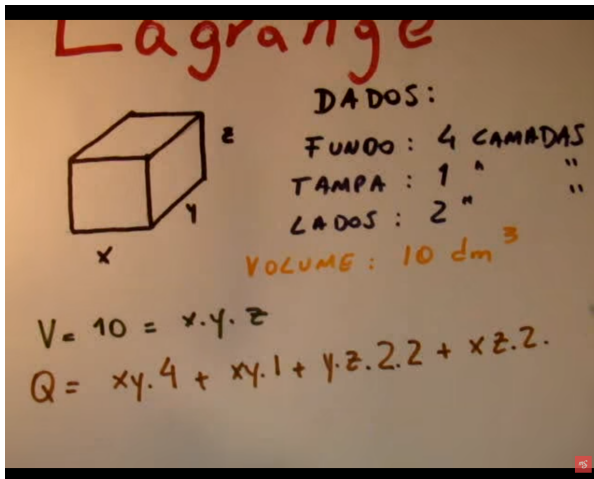 Lagrange
DADOS:
FUNDO: 4 CAMADAS
TAMPA: 1 " "
LADOS: 2 " "
VOLUME: 10 dm³
z
y
x
V= 10 = x.y.z
Q= xy.4 + xy.1 + y.z.2.2 + xz.2.